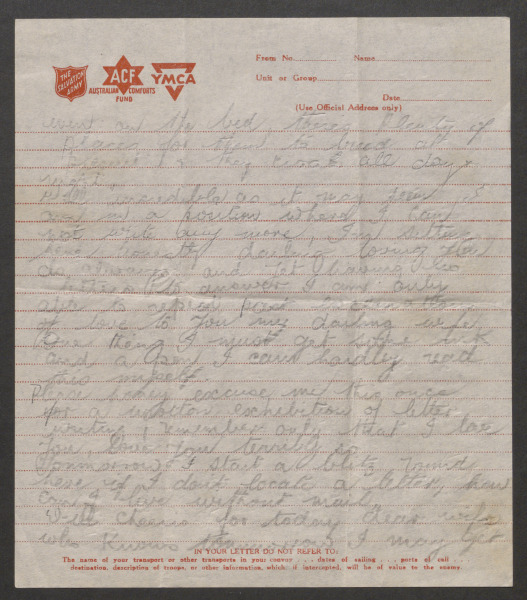 THE SALVATION ARMY
ACF
AUSTRALIAN COMFORTS FUND
YMCA
From No. Name
Unit or Group
Date
(Use Official Address only)
even on the bed, theres plenty of
places for them to breed at
present & they croak all day &
night.
incredible as it may seem, I
am in a position where I can
not write any more, I'm sitting
here honestly darling loving you
as always and yet having no
letters to answer I am only
able to repeat past
of love to you my darling wife
One thing I must get some ink
and a pen I can hardly read
this myself.
Please honey excuse me this once
for a rotten exhibition of letter
writing, remember only that I love
you, love you terribly so
Tommorrow I start a blitz round
here if I dont locate a letter, how
can I love without mail.
Well cheerio for today dear wife
who knows tommorrow I may get
IN YOUR LETTER DO NOT REFER TO:
The name of your transport or other transports in your convoy . . . dates of sailing . . . ports of call . . .
destination, description of troops, or other information, which, if intercepted, will be of value to the enemy.